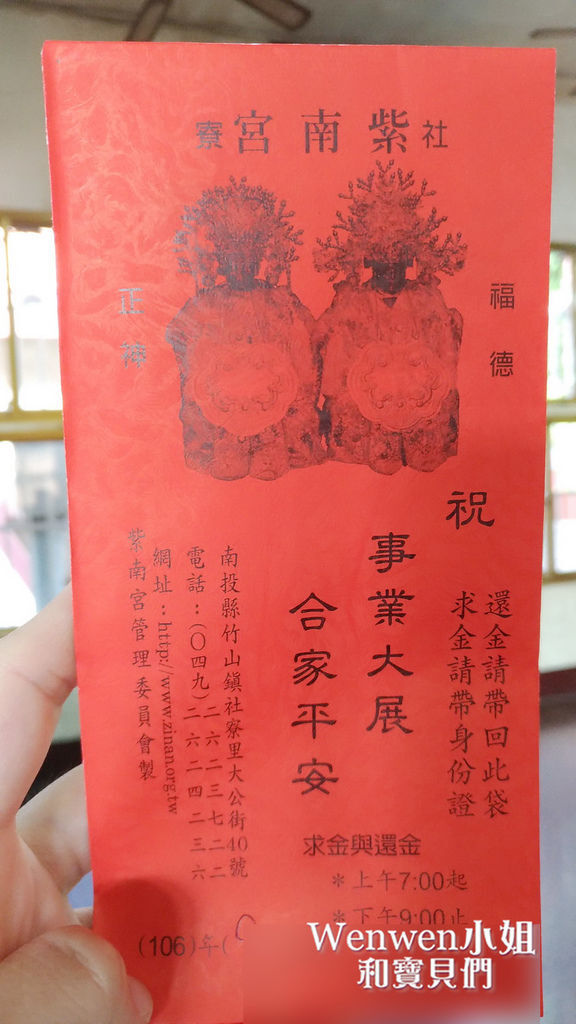 社紫南宮寮
福德
正神
祝
事業大展
合家平安
還金請帶回此袋
求金請帶身份證
南投縣竹山鎮社寮里大公街40號
電話：(〇四九)二六二三七二二
二六二四二三六
網址：http://www.zinan.org.tw
紫南宮管理委員會製
求金與還金
＊上午7:00起
＊下午9:00止
(106)年(
Wenwen小姐
和寶貝們